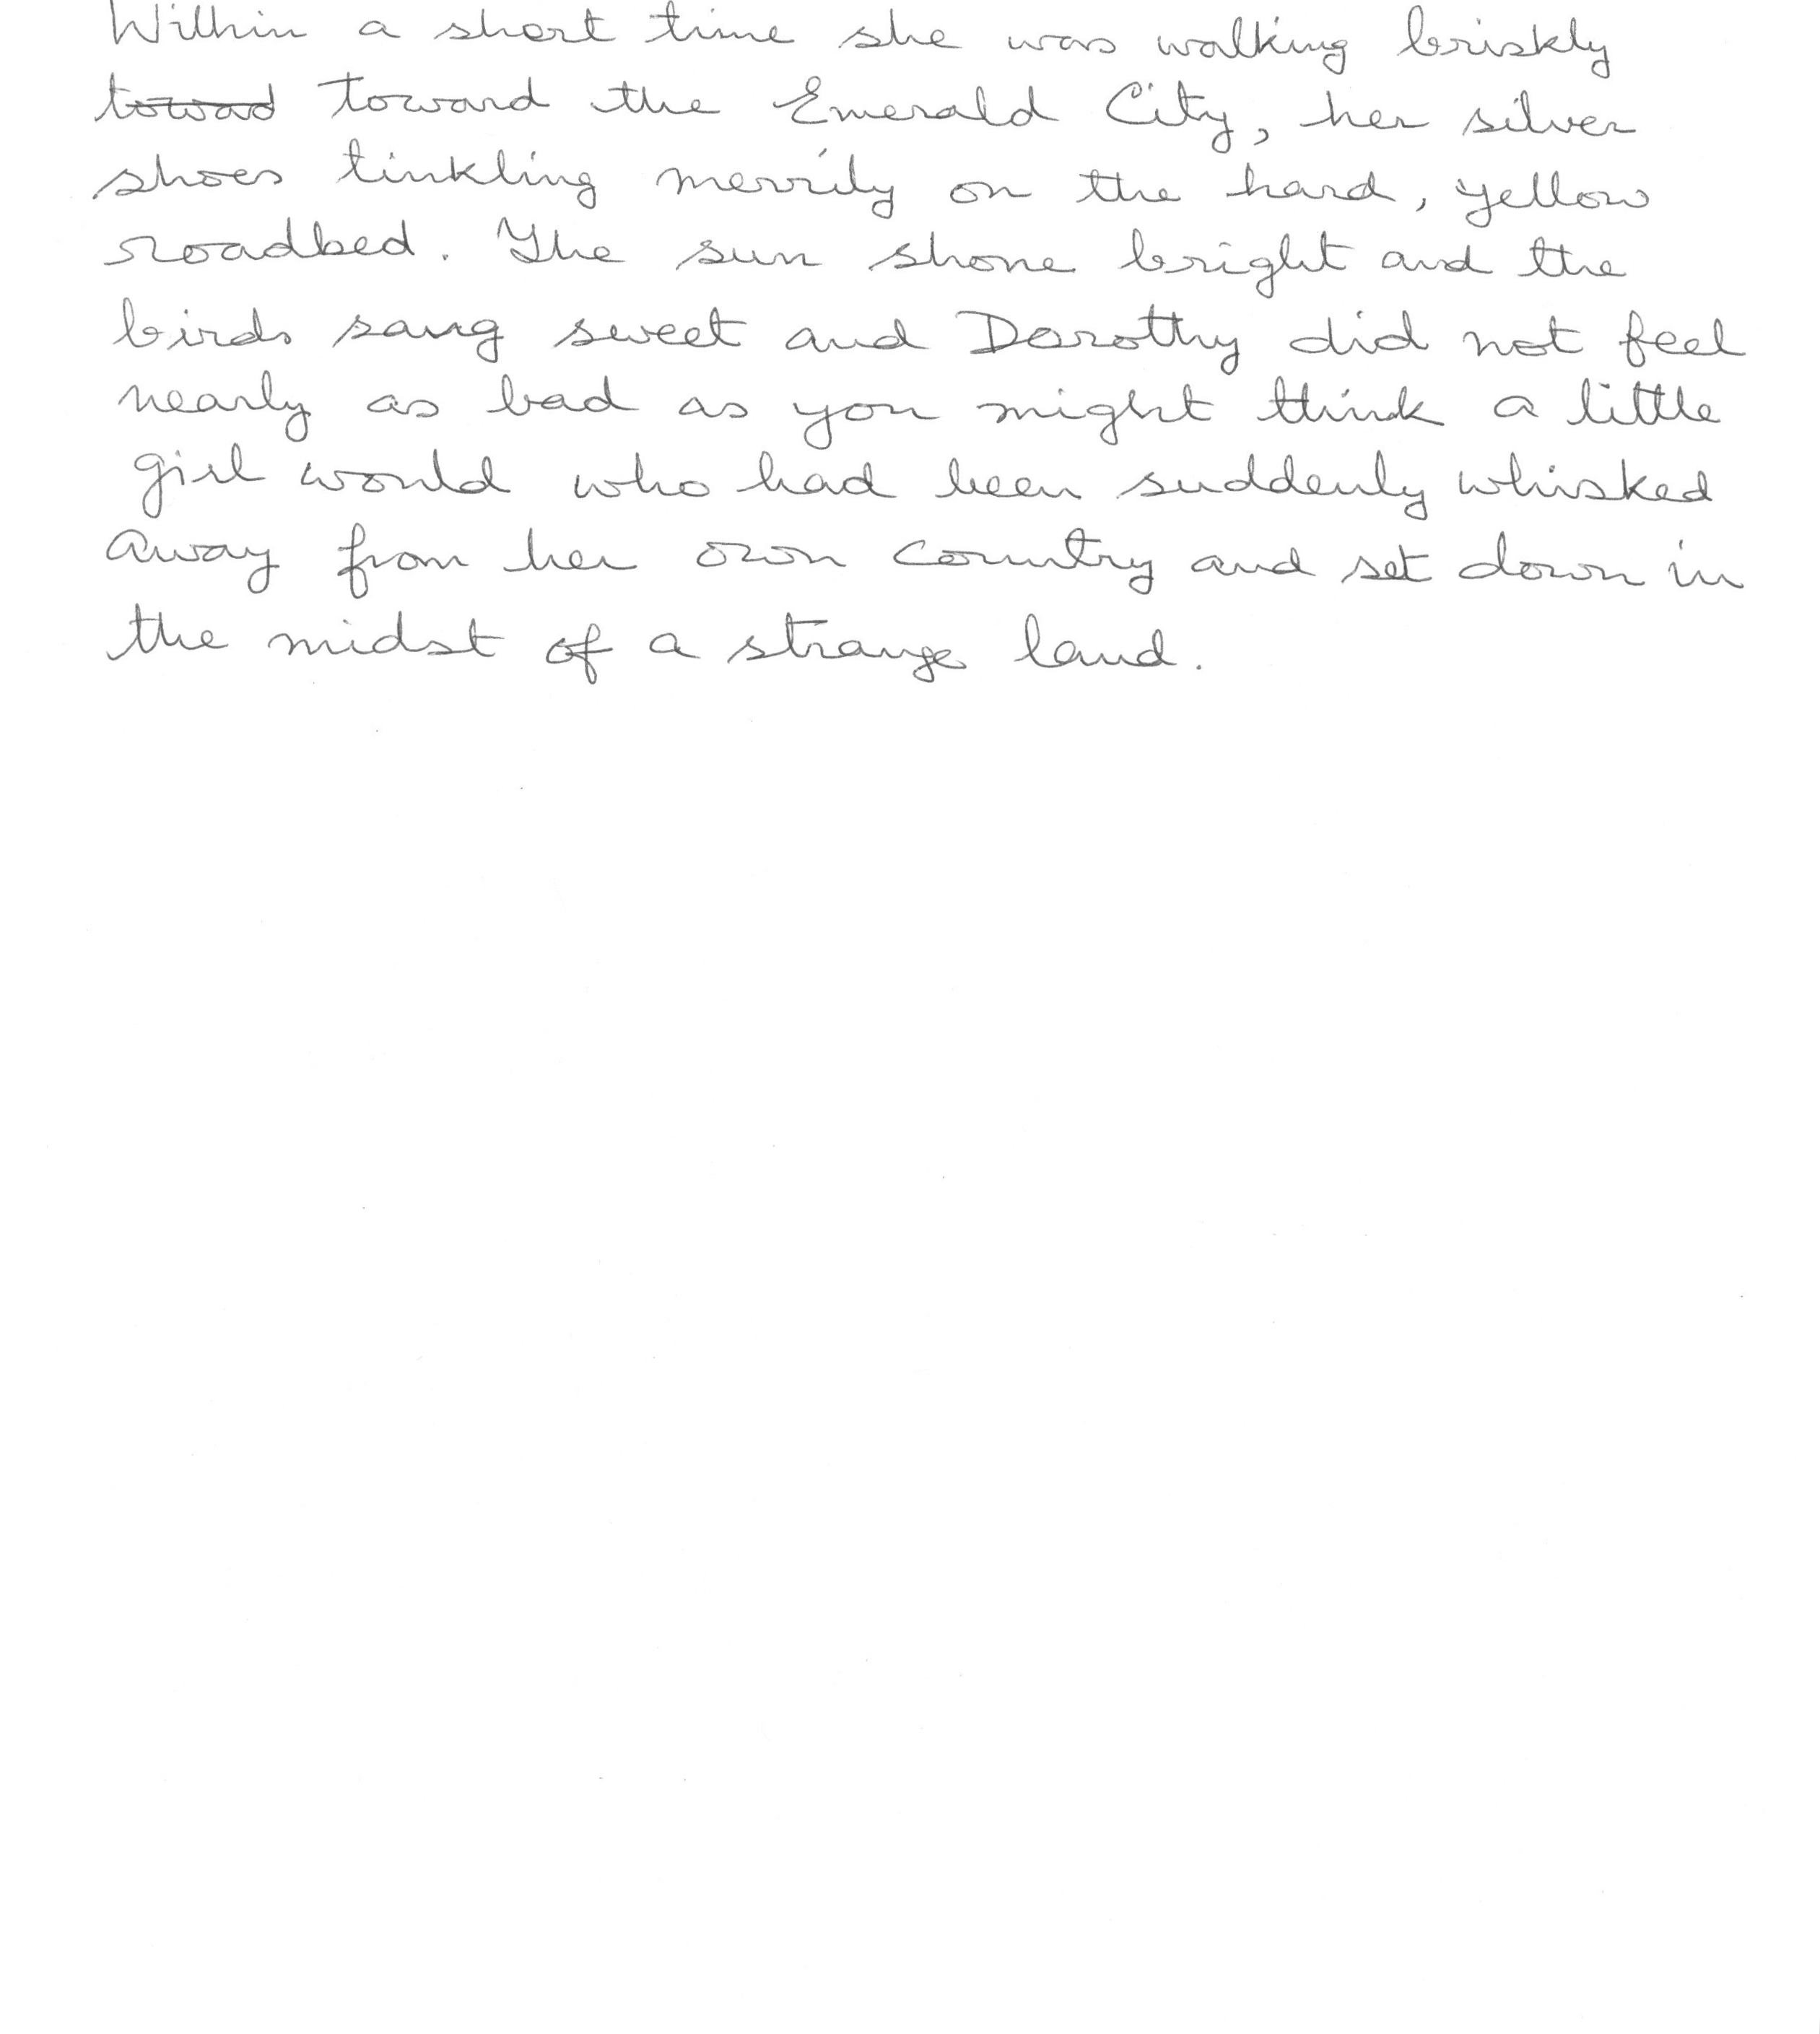 Within a short time she was walking briskly
towad toward the Emerald City, her silver
shoes tinkling merrily on the hard, yellow
roadbed. The sun shone bright and the
birds sang sweet and Dorothy did not feel
nearly as bad as you might think a little
girl would who had been suddenly whisked
away from her own country and set down in
the midst of a strange land.